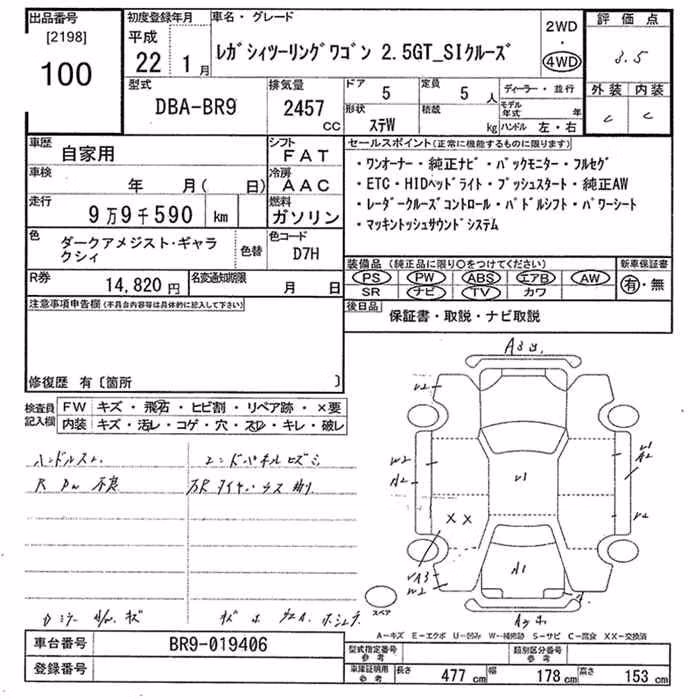 出品番号 初度登録年月 車名・グレード 2WD 評価点
[2198] 平成 ・
100 22 年 1 月 レガシィツーリングワゴン 2.5GT_SIクルーズ 4WD 3.5
型式 排気量 ドア 5 定員 5 人 ディーラー・並行 外装 内装
DBA-BR9 2457 CC 形状 ステW 積載 kg モデル年式 年 C C
ハンドル 左・右
車歴 自家用 シフト FAT セールスポイント(正常に機能するものに限ります)
車検 年 月 ( 日) 冷房 AAC ・ワンオーナー・純正ナビ・バックモニター・フルセグ
・ETC・HIDヘッドライト・プッシュスタート・純正AW
走行 9万9千590 km 燃料 ガソリン ・レーダークルーズコントロール・パドルシフト・パワーシート
・マッキントッシュサウンドシステム
色 ダークアメジスト・ギャラクシィ 色替 色コード D7H
装備品(純正品に限り○をつけてください) 新車保証書
R券 14,820 円 名変通知期限 月 日 PS PW ABS エアB AW 有・無
SR ナビ TV カワ
注意事項申告欄(不具合内容等は具体的に記入して下さい) 後日品 保証書・取説・ナビ取説
修復歴 有〔箇所 〕
検査員記入欄 FW キズ・飛石・ヒビ割・リペア跡・×要
内装 キズ・汚レ・コゲ・穴・スレ・キレ・破レ
ハンドルスレ エンドパネルヒズミ
スペア
A−キズ E−エクボ U−凹み W−補修跡 S−サビ C−腐食 XX−交換済
車台番号 BR9-019406 型式指定番号 参考 類別区分番号 参考
登録番号 車庫証明用 参考 長さ 477 cm 幅 178 cm 高さ 153 cm